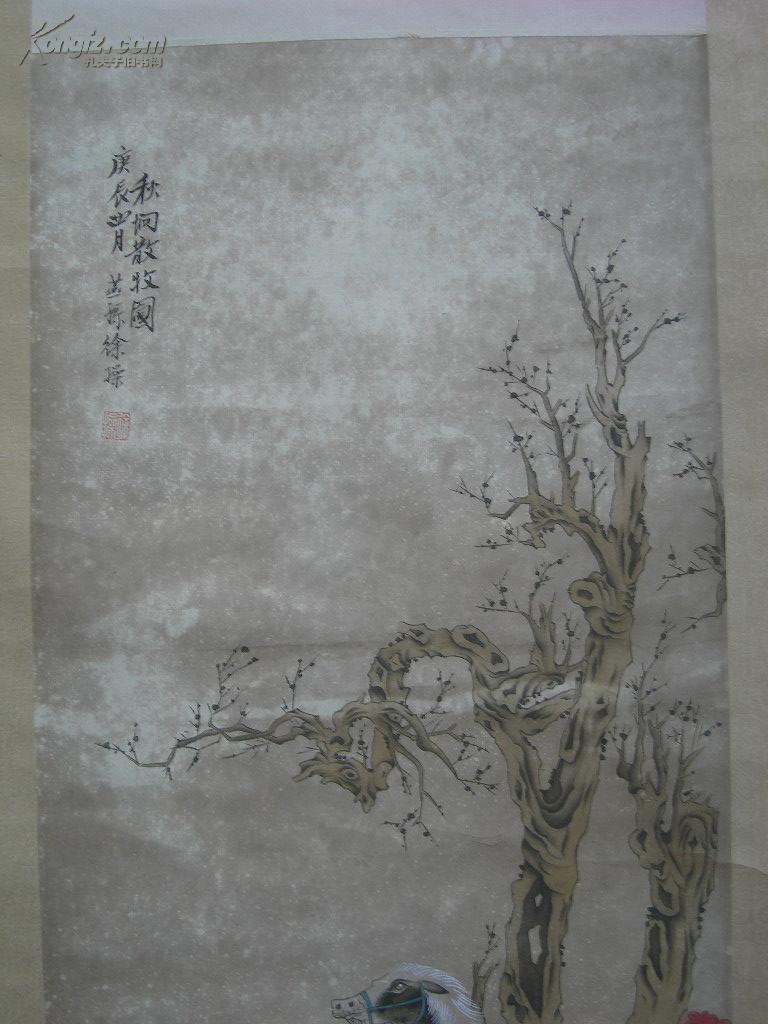 秋坰散牧圖
庚辰四月 燕孫徐操
Kongfz.com
孔夫子旧书网